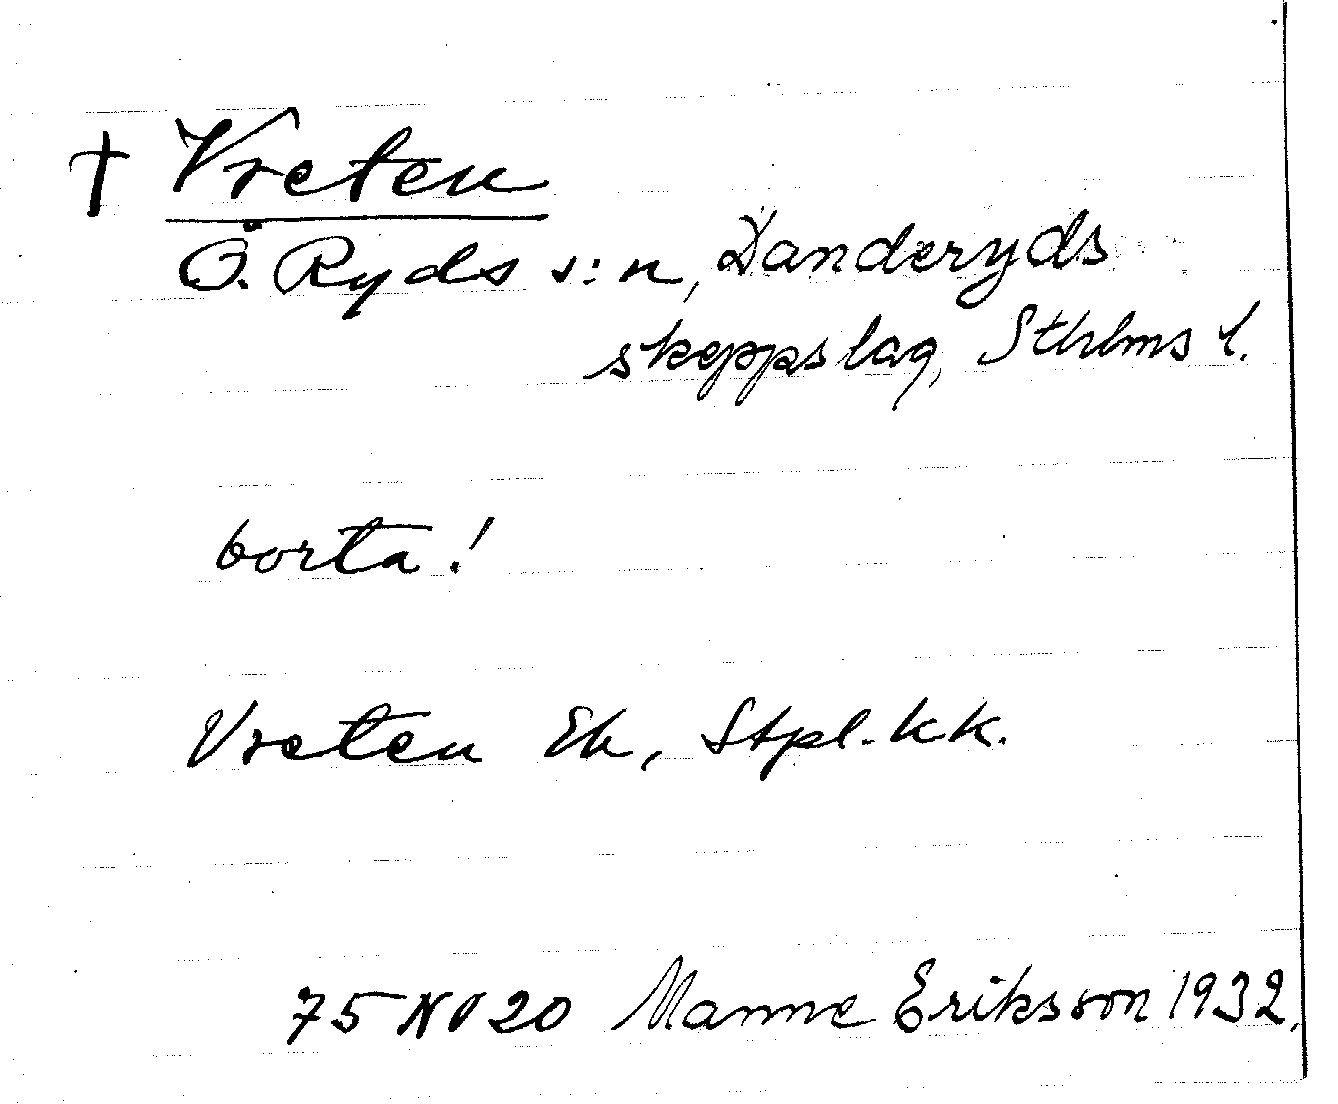 † Vreten
Ö. Ryds s:n, Danderyds
skeppslag, Sthlms l.
borta!
Vreten Ek, Stpl. kk.
75 NV 20 Manne Eriksson 1932.